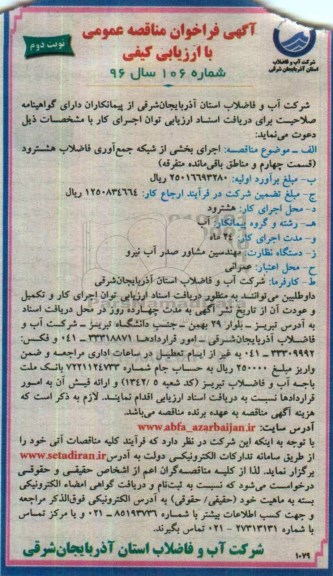 آگهی فراخوان مناقصه عمومی
با ارزیابی کیفی
شماره ۱۰۶ سال ۹۶
نوبت دوم
شرکت آب و فاضلاب
استان آذربایجان شرقی
شرکت آب و فاضلاب استان آذربایجان‌شرقی از پیمانکاران دارای گواهینامه
صلاحیت برای دریافت اسناد ارزیابی توان اجرای کار با مشخصات ذیل
دعوت می‌نماید:
الف - موضوع مناقصه: اجرای بخشی از شبکه جمع‌آوری فاضلاب هشترود
(قسمت چهارم و مناطق باقی‌مانده متفرقه)
ب- مبلغ برآورد اولیه: ۲۵۰۱۶۶۹۳۲۸۰ ریال
ج- مبلغ تضمین شرکت در فرآیند ارجاع کار: ۱۲۵۰۸۳۴۶۶۴ ریال
د- محل اجرای کار: هشترود
هـ- رشته و گروه پیمانکار: آب
و- مدت اجرای کار: ۲۴ ماه
ز- دستگاه نظارت: مهندسین مشاور صدر آب نیرو
ح- محل اعتبار: عمرانی
ط- کارفرما: شرکت آب و فاضلاب استان آذربایجان‌شرقی
داوطلبین می‌توانند به منظور دریافت اسناد ارزیابی توان اجرای کار و تکمیل
و عودت آن از تاریخ نشر آگهی به مدت چهارده روز در محل دریافت اسناد
به آدرس تبریز - بلوار ۲۹ بهمن - جنب دانشگاه تبریز - شرکت آب و
فاضلاب آذربایجان‌شرقی - امور قراردادها ۳۳۳۱۸۸۷۱ - ۰۴۱ و فکس:
۳۳۳۰۹۹۹۲ - ۰۴۱ به غیر از ایام تعطیل در ساعات اداری مراجعه و ضمن
واریز مبلغ ۲۵۰۰۰۰ ریال به حساب جام شماره ۷۲۲۱۱۲۴۷۳۳ بانک ملت
باجه آب و فاضلاب تبریز (کد شعبه ۱۳۴۲/۵) و ارائه فیش آن به امور
قراردادها نسبت به دریافت اسناد ارزیابی اقدام نمایند. لازم به ذکر است که
هزینه آگهی مناقصه به عهده برنده مناقصه می‌باشد.
آدرس سایت: www.abfa_azarbaijan.ir
با توجه به اینکه این شرکت در نظر دارد که فرآیند کلیه مناقصات آتی خود را
از طریق سامانه تدارکات الکترونیکی دولت به آدرس www.setadiran.ir
برگزار نماید. لذا از کلیه مناقصه‌گران اعم از اشخاص حقیقی و حقوقی
درخواست می‌شود که نسبت به ثبت‌نام و دریافت گواهی امضاء الکترونیکی
بسته به ماهیت خود (حقیقی/ حقوقی) به آدرس الکترونیکی فوق‌الذکر مراجعه
و جهت کسب اطلاعات بیشتر با شماره ۸۵۱۹۳۷۳۱ - ۰۲۱ و با مرکز تماس
با شماره ۲۷۳۱۳۱۳۱ - ۰۲۱ تماس بگیرند.
شرکت آب و فاضلاب استان آذربایجان‌شرقی
۱۰۷۹